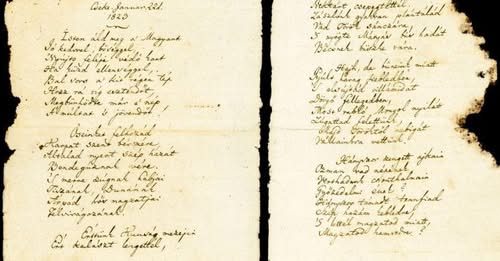 Cseke Januar. 22d.
1823
Isten áldd meg a Magyart
Jó kedvvel, bőséggel,
Nyújts feléje védő kart
Ha küzd ellenséggel;
Bal sors a kit régen tép
Hozz rá víg esztendőt,
Megbűnhődte már e nép
A multat s jövendőt!
Őseinket felhozád
Kárpát szent bérczére,
Általad nyert szép hazát
Bendegúznak vére.
'S merre zúgnak habjai
Tiszának, Dunának
Árpád hős magzatjai
Felvirágozának.
Értünk Kunság mezején
Ért kalászt lengettél,
Nektárt csepegtettél.
Zászlónk gyakran plántálád
Vad török sánczára,
'S nyögte Mátyás bús hadát
Bécsnek büszke vára.
Hajh, de bűneink miatt
Gyúlt harag kebledben,
'S elsújtád villámidat
Dörgő fellegedben,
Most rabló Mongol nyilát
Zúgattad felettünk,
Majd töröktől rabigát
Vállainkra vettünk.
Hányszor zengett ajkain
Ozman vad népének
Vert hadunk csonthalmain
Győzedelmi ének!
Hányszor támadt tennfiad
Szép hazám kebledre,
'S lettél magzatod miatt
Magzatod hamvedre?